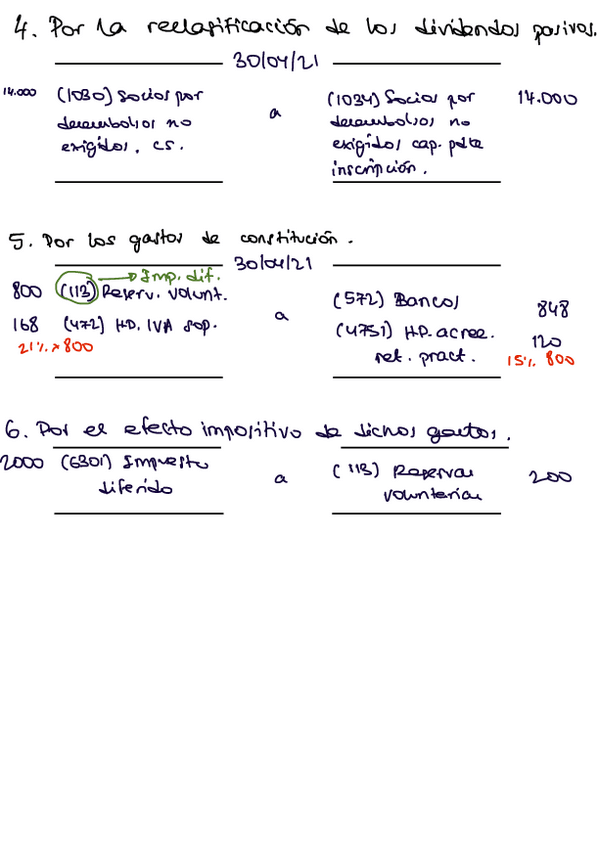 4. Por la reclasificación de los dividendos pasivos.
30/04/21
14.000 (1030) Socios por desembolsos no exigidos, CS. a (1034) Socios por desembolsos no exigidos cap. pdte inscripción. 14.000
5. Por los gastos de constitución.
30/04/21
→ Imp. dif.
800 (113) Reserv. Volunt. a (572) Bancos 848
168 (472) HP. IVA sop. (4751) HP. acree. ret. pract. 120
21% x 800 15% 800
6. Por el efecto impositivo de dichos gastos.
2000 (6301) Impuesto diferido a (113) Reservas voluntarias 200